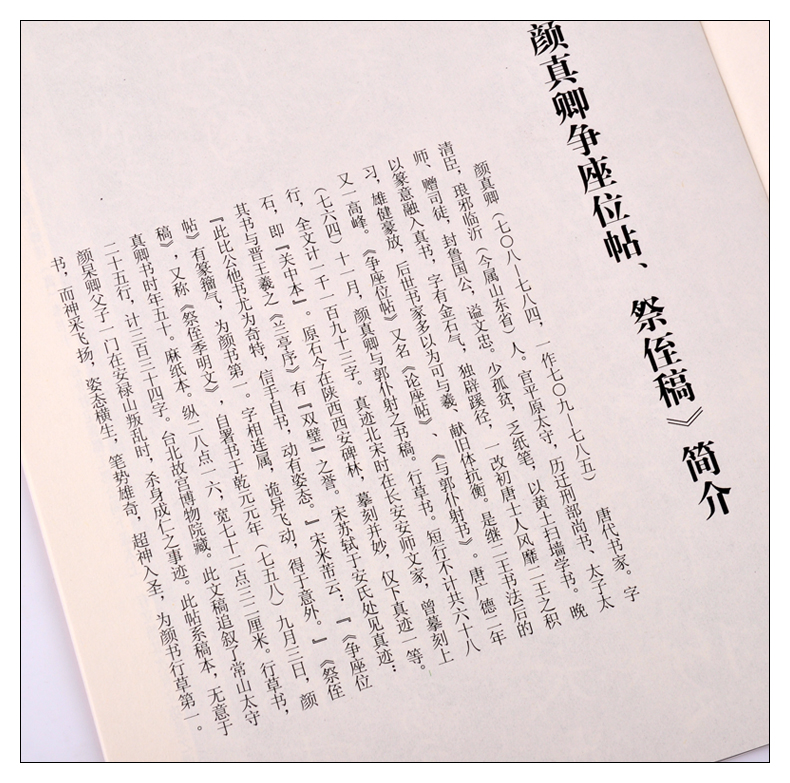 颜真卿争座位帖、祭侄稿》简介
颜真卿（七〇八—七八四，一作七〇九—七八五）　唐代书家。字
清臣，琅邪临沂（今属山东省）人。官平原太守，历迁刑部尚书、太子太
师、赠司徒，封鲁国公，谥文忠。少孤贫，乏纸笔，以黄土扫墙学书。晚
以篆意融入真书，字有金石气，独辟蹊径，一改初唐士人风靡二王之积
习，雄健豪放，后世书家多以为可与羲、献旧体抗衡。是继二王书法后的
又一高峰。《争座位帖》又名《论座帖》、《与郭仆射书》。唐广德二年
（七六四）十一月，颜真卿与郭仆射之书稿。行草书。短行不计共六十八
行，全文计一千一百九十三字。真迹北宋时在长安安师文家，曾摹刻上
石，即『关中本』。原石今在陕西西安碑林，摹刻并妙，仅下真迹一等。
其书与晋王羲之《兰亭序》有『双璧』之誉。宋苏轼于安氏处见真迹：
『此比公他书尤为奇特，信手自书，动有姿态。』宋米芾云：『《争座位
帖》有篆籀气，为颜书第一。字相连属，诡异飞动，得于意外。』《祭侄
稿》，又称《祭侄季明文》，自署书于乾元元年（七五八）九月三日，颜
真卿书时年五十。麻纸本。纵二八点一六，宽七十二点三二厘米。行草书，
二十五行，计三百三十四字。台北故宫博物院藏。此文稿追叙了常山太守
颜杲卿父子一门在安禄山叛乱时，杀身成仁之事迹。此帖系稿本，无意于
书，而神采飞扬，姿态横生，笔势雄奇，超神入圣，为颜书行草第一。